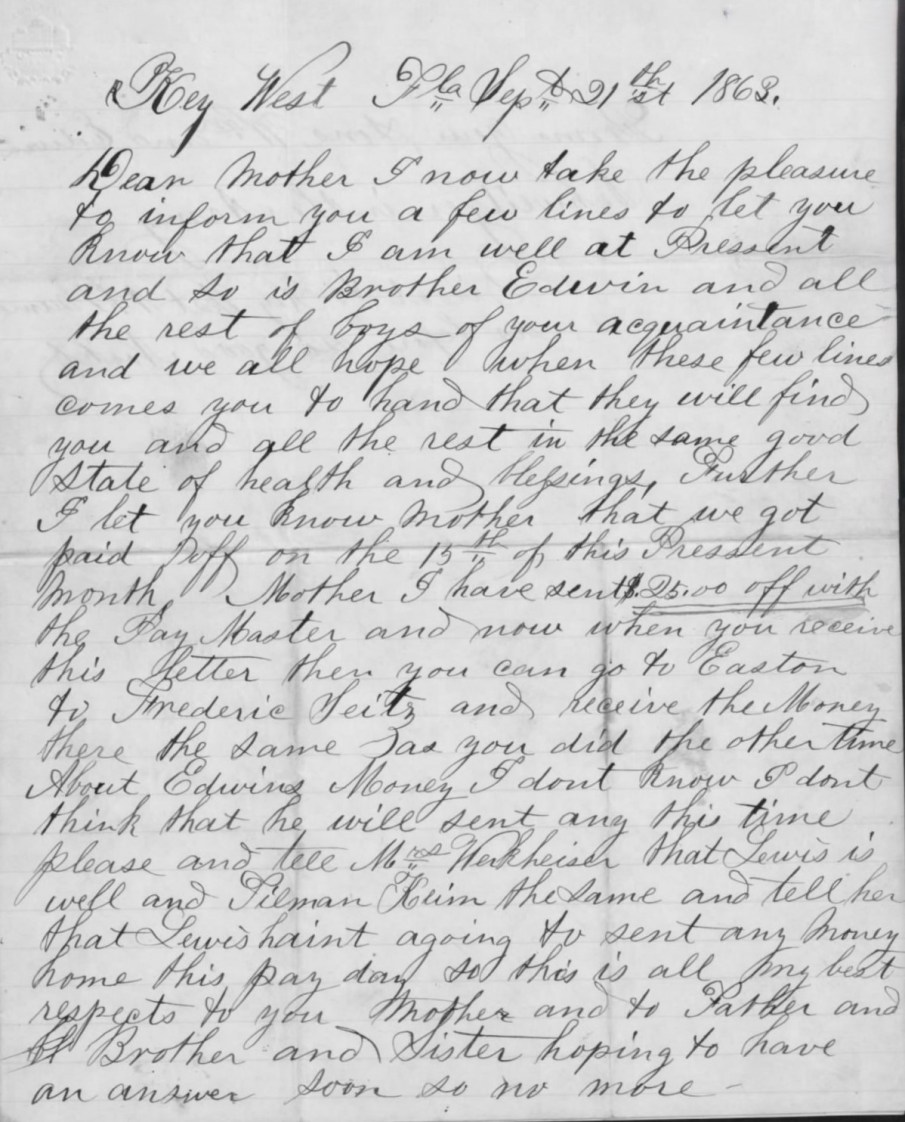 Key West Fla Sept 21th st 1863.
Dear Mother I now take the pleasure
to inform you a few lines to let you
know that I am well at Pressent
and so is Brother Edwin and all
the rest of boys of your acquaintance
and we all hope when these few lines
comes you to hand that they will find
you and all the rest in the same good
state of health and blessings, Further
I let you know Mother that we got
paid off on the 15th of this Pressent
Month, Mother I have sent $.25.00 off with
the Pay Master and now when you receive
this letter then you can go to Easton
to Frederic Seitz and receive the Money
there the same as you did the other time
About Edwins Money I dont know I dont
think that he will sent any this time
please and tell Mrs Werkheiser that Lewis is
well and Tilman Keim the same and tell her
that Lewis haint agoing to sent any Money
home this pay day so this is all my best
respects to you Mother and to Father and
Brother and Sister hoping to have
an answer soon so no more -